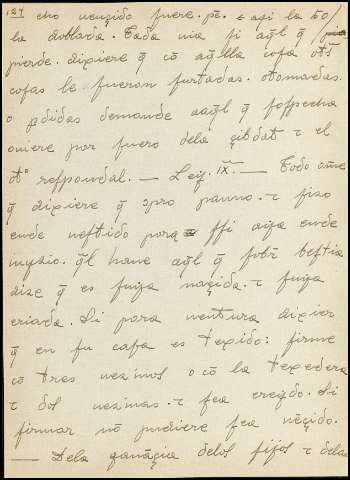 124
cho uençido fuere. pē. τ asi la t̄o/
la doblada. Cada una si aq̄l q̄
pierde. dixiere q̄ cō aq̄lla cosa ot̄s
cosas le fueron furtadas. otomadas.
o ꝑdidas demande aaq̄l q̄ sospecha
ouiere por fuero dela çibdat τ el
ot° respondal. — Leẏ. IX. — Todo om̄e
q̄ dixiere q̄ ꝯpro panno. τ fizo
ende uestido pora ssi ava ende
mysmo. q̄l haue aq̄l q̄ sobr̄ bestia
dize q̄ es suya naçida. τ suya
criada. Si pora uentura dixier
q̄ en su casa es texido: firme
cō tres uezinos o cō la texedera
τ dos uezinas. τ sea creẏdo. Si
firmar nō pudiere sea uēçido.
— Dela ganāçia delos fijos τ delas